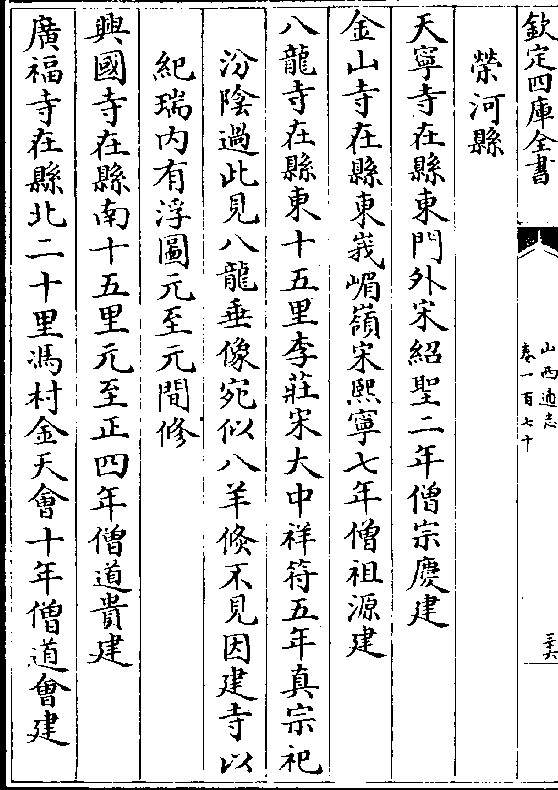 欽定四庫全書
山西通志
卷一百七十
三十六
榮河縣
天寧寺在縣東門外宋紹聖二年僧宗慶建
金山寺在縣東峩嵋嶺宋熙寧七年僧祖源建
八龍寺在縣東十五里李莊宋大中祥符五年真宗祀
汾陰過此見八龍垂像宛似八羊倐不見因建寺以
紀瑞内有浮圖元至元間修
興國寺在縣南十五里元至正四年僧道貴建
廣福寺在縣北二十里馮村金天會十年僧道會建